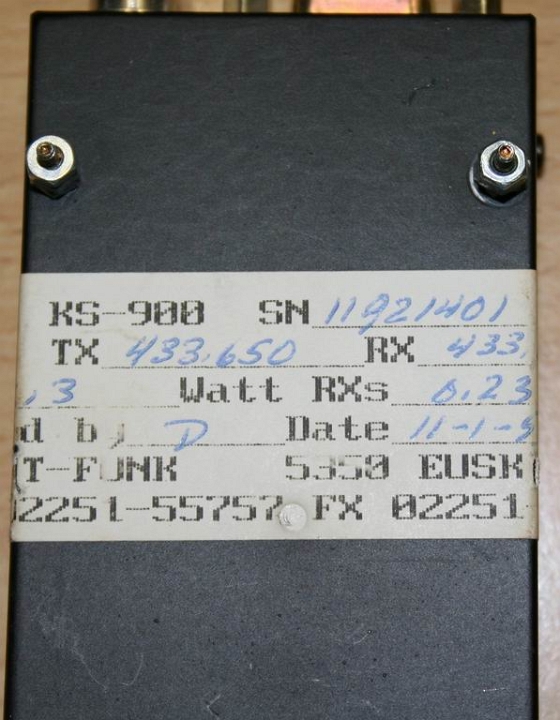 KS-900 SN 11921401
TX 433.650 RX 433.
.3 Watt RXs 0.23
d by D Date 11-1-9
T-FUNK 5350 EUSK
2251-55757 FX 02251